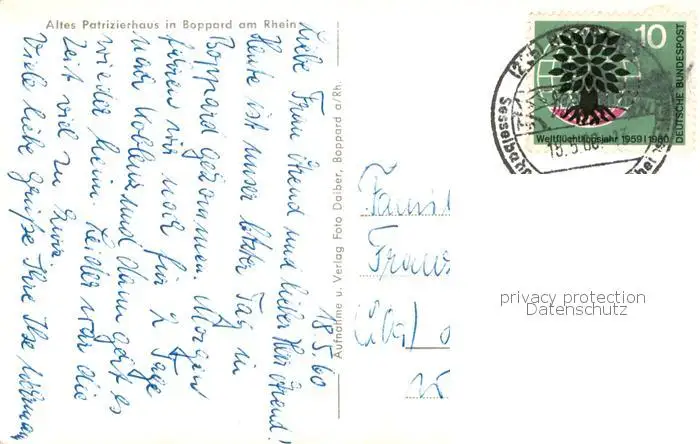 Altes Patrizierhaus in Boppard am Rhein
18.5.60
Liebe Frau Arend und lieber Herr Arend!
Heute ist unser letzter Tag in
Boppard gekommen. Morgen
fahren wir noch für 2 Tage
nach Koblenz und dann geht es
wieder heim. Leider war die
Zeit viel zu kurz.
Viele liebe Grüße Ihre Ilse
Aufnahme u. Verlag Foto Daiber, Boppard a/Rh.
10
DEUTSCHE BUNDESPOST
Weltflüchtlingsjahr 1959/1960
Sesselbahn
privacy protection
Datenschutz